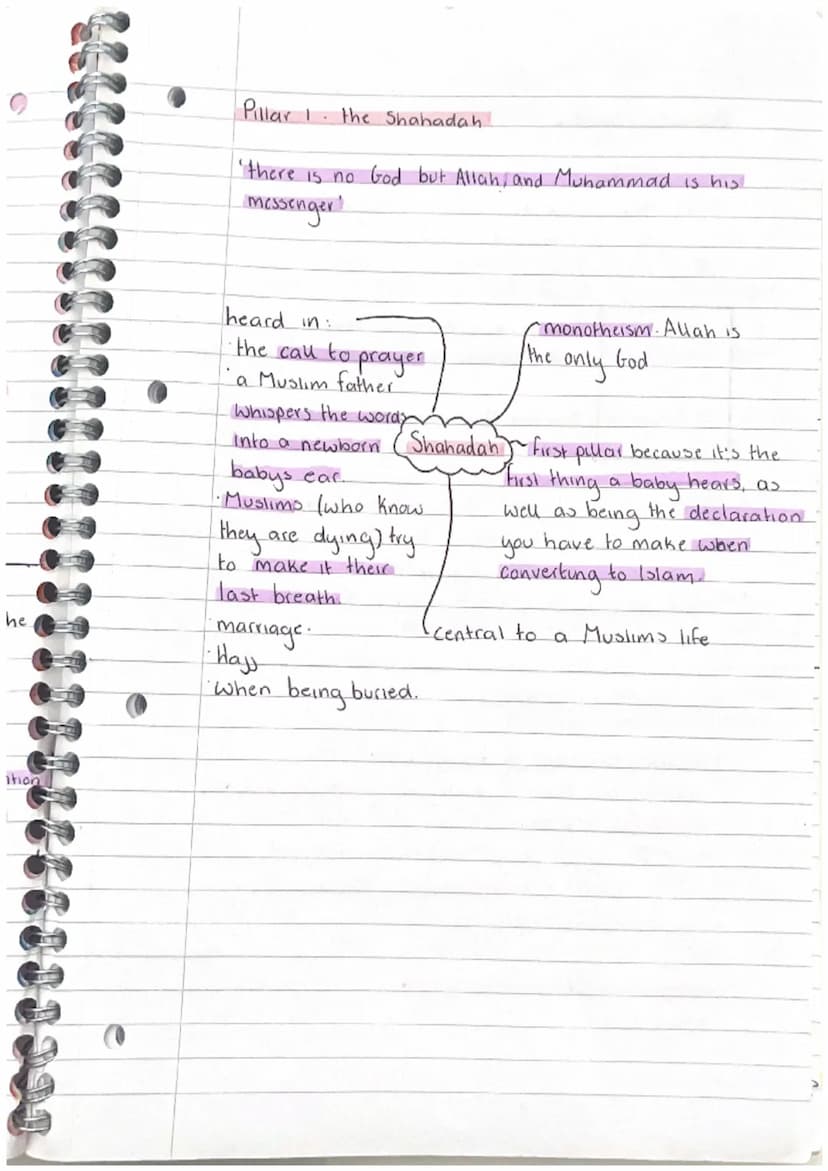 Pillar 1 . the Shahadah
'there is no God but Allah, and Muhammad is his
messenger'
heard in:
· the call to prayer
· a Muslim father
whispers the words
into a newborn
babys ear.
· Muslims (who know
they are dying) try
to make it their
last breath.
· marriage.
· Hajj
· when being buried.
Shahadah
monotheism. Allah is
the only God
first pillar because it's the
first thing a baby hears, as
well as being the declaration
you have to make when
converting to Islam.
central to a Muslims life
he
ition